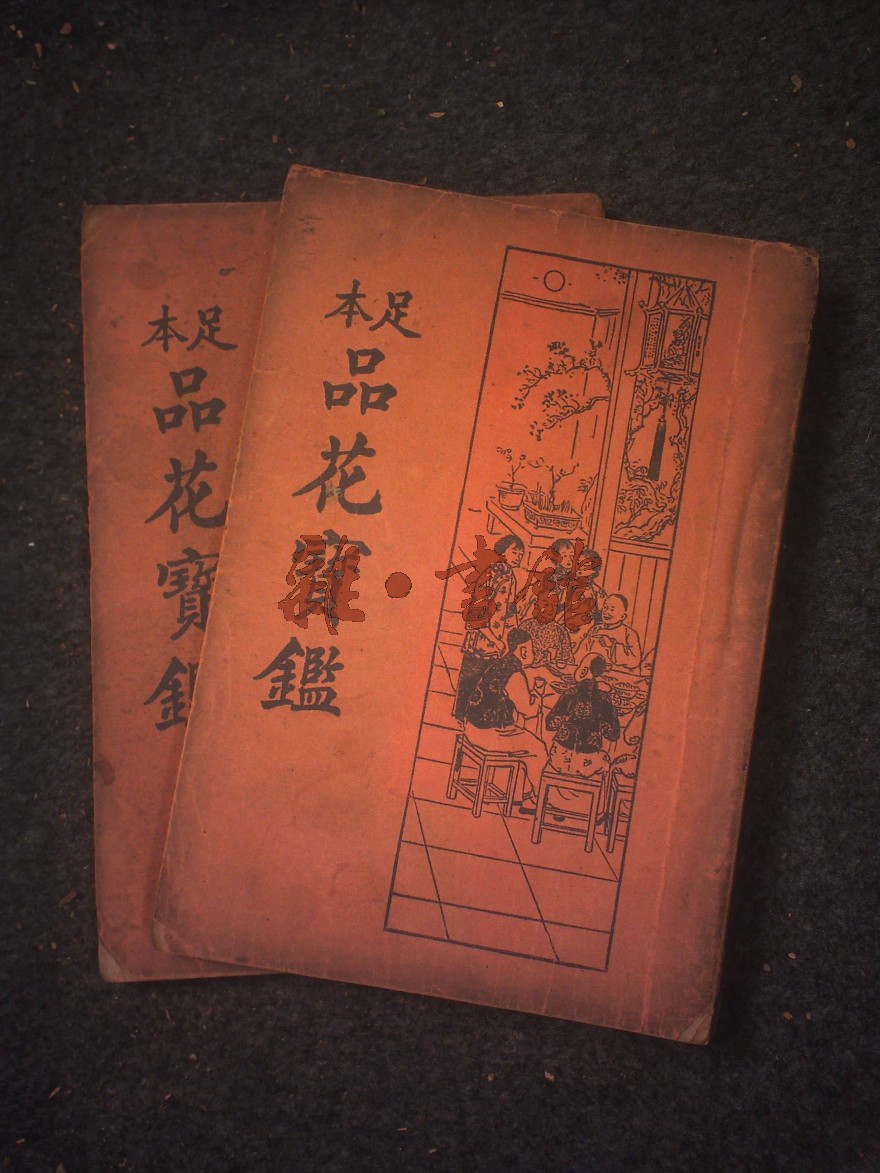 足本
品花寶鑑
足本
品花寶鑑
雜·書館